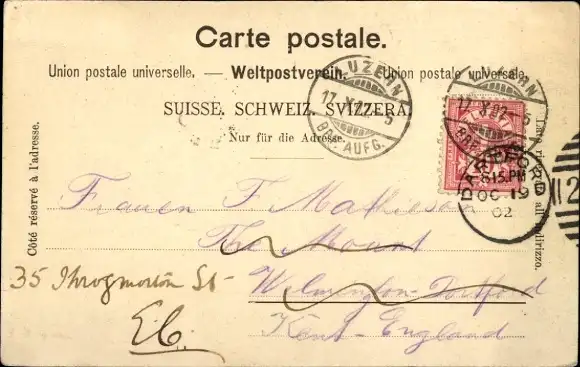 Carte postale.
Union postale universelle. — Weltpostverein. — Union postale universale.
SUISSE. SCHWEIZ. SVIZZERA.
Nur für die Adresse.
Côté réservé à l'adresse.
LUZERN
17.X.02.-5
BRF. AUFG.
LUZERN
17.X.02.-5
DARTFORD
815.PM
OC 19
02
2
all'indirizzo.
Frauen F Mathieson
The Mount
35 Throgmorton St-
Wilmington-Dartford
E.C.
Kent-England